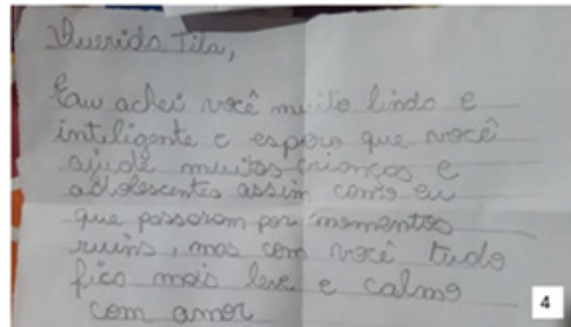 Querido Tila,
Eu achei você muito lindo e
inteligente e espero que você
ajude muitas crianças e
adolescentes assim como eu
que passaram por momentos
ruins, mas com você tudo
fica mais leve e calmo
com amor
4